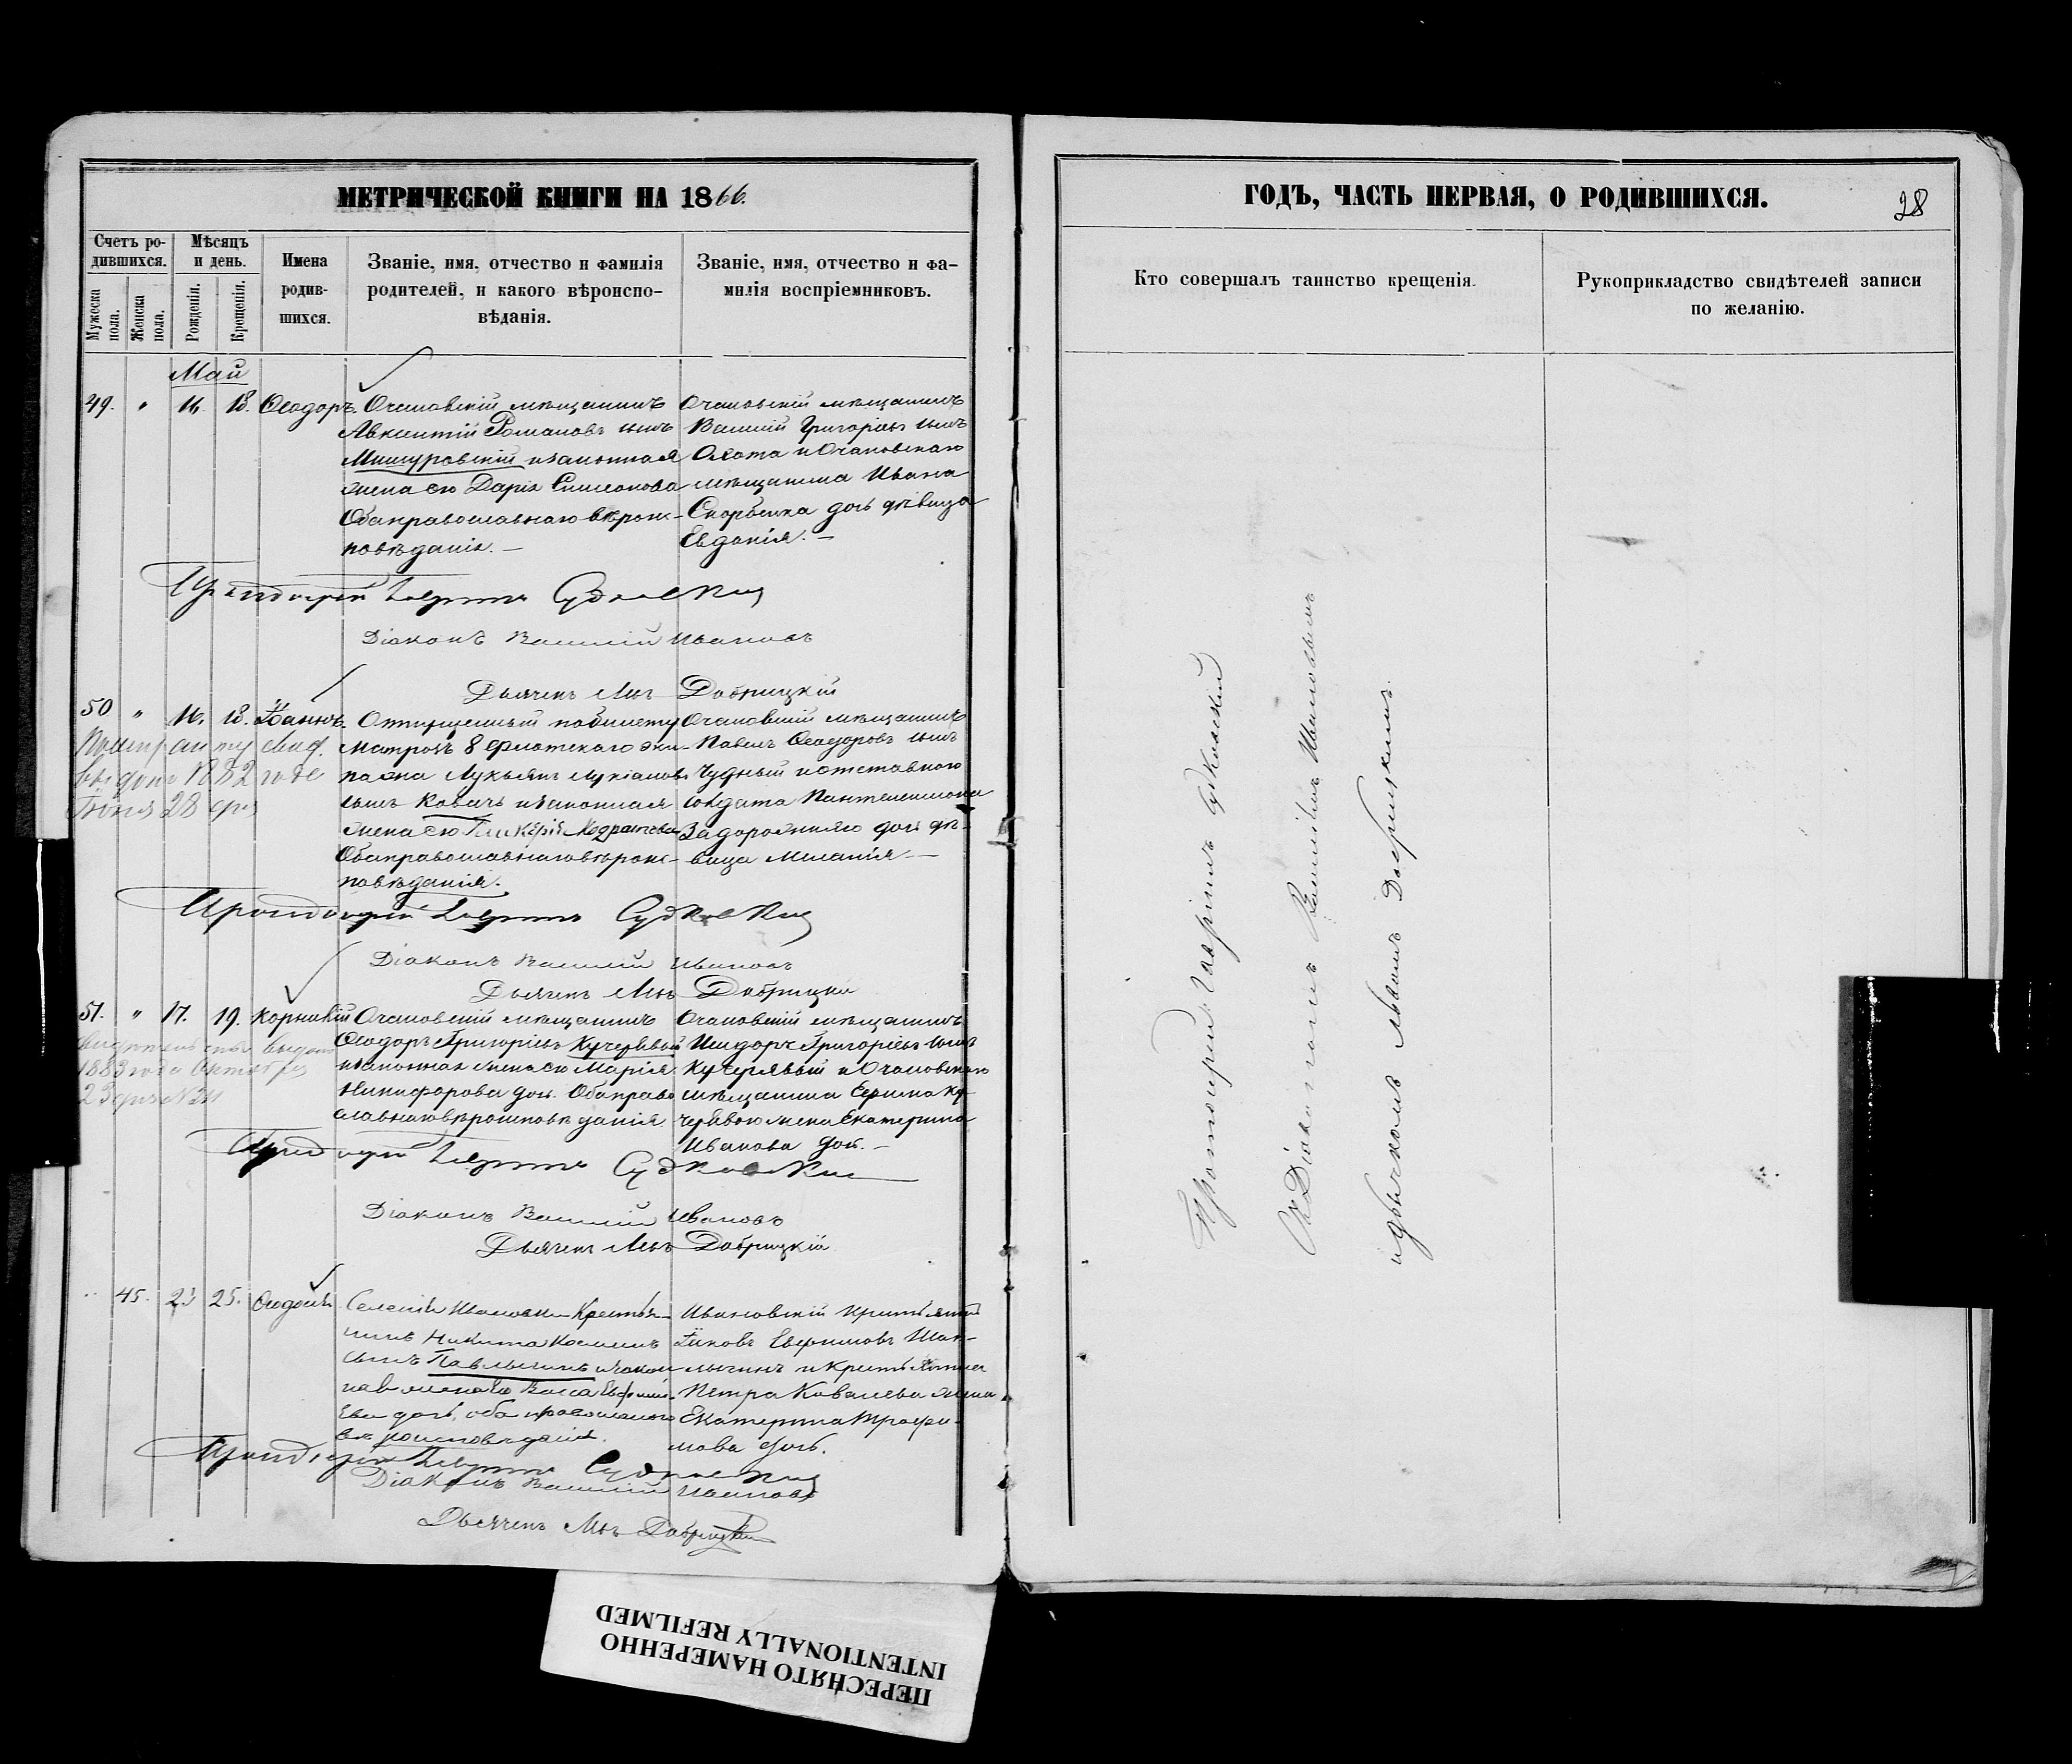 МЕТРИЧЕСКОЙ КНИГИ НА 1866.
Счетъ ро-
дившихся.
Мужеска пола.
Женска пола.
Мѣсяцъ
и день.
Рожденія.
Крещенія.
Имена
родив-
шихся.
Званіе, имя, отчество и фамилія
родителей, и какого вѣроиспо-
вѣданія.
Званіе, имя, отчество и фа-
милія воспріемниковъ.
Май
49. " 16. 18. Ѳеодоръ.
Очаковскій мѣщанинъ
Авксентій Романовъ сынъ
Мишуровскій и законная
жена его Дарія Симеонова
Оба православнаго вѣроис-
повѣданія. —
Очаковскій мѣщанинъ
Василій Григорьевъ сынъ
и Очаковскаго
мѣщанина Ивана
дочь дѣвица
Евдокія. —
Протоіерей Гавріилъ Судковскій
Діаконъ Василій Ивановъ
Дьячекъ Левъ Добрицкій
50 " 16. 18.
выдано 1882 года
Іюня 28 дня
Отпущенный по билету
матросъ 8 флотскаго эки-
пажа Лукьянъ Лукіановъ
сынъ Ковачъ и законная
жена его Гликерія Кодратьева
Оба православнаго вѣроис-
повѣданія.
Очаковскій мѣщанинъ
Павелъ Ѳеодоровъ сынъ
Чудный и отставнаго
солдата Пантелеимона
Задорожнаго дочь дѣ-
вица Меланія. —
Протоіерей Гавріилъ Судковскій
Діаконъ Василій Ивановъ
Дьячекъ Левъ Добрицкій
51. " 17. 19. Корнилій
1883 года Октября
23 дня №
Очаковскій мѣщанинъ
Ѳеодоръ Григорьевъ Кучерявый
и законная жена его Марія
Никифорова дочь. Оба право
славнаго вѣроисповѣданія.
Очаковскій мѣщанинъ
Исидоръ Григорьевъ сынъ
Кучерявый и Очаковскаго
мѣщанина Ефима Ку-
черяваго жена Екатерина
Иванова дочь. —
Протоіерей Гавріилъ Судковскій
Діаконъ Василій Ивановъ
Дьячекъ Левъ Добрицкій
" 45. 23 25.
Селенія Ивановки Крестья-
нинъ Никита Косминъ
сынъ и закон-
ная жена его Васса Евфимі-
ева дочь, оба православнаго
вѣроисповѣданія.
Ивановскій крестьянинъ
Яковъ Евфимовъ
и крестьянина
Петра Ковалева жена
Екатерина Трофи-
мова дочь.
Протоіерей Гавріилъ Судковскій
Діаконъ Василій Ивановъ
Дьячекъ Левъ Добрицкій
ГОДЪ, ЧАСТЬ ПЕРВАЯ, О РОДИВШИХСЯ.
28
Кто совершалъ таинство крещенія.
Рукоприкладство свидѣтелей записи
по желанію.
Протоіерей Гавріилъ Судковскій
Съ Діакономъ Василіемъ Ивановымъ
и дьячкомъ Львомъ Добрицкимъ.
ПЕРЕСНЯТО НАМЕРЕННО
INTENTIONALLY REFILMED